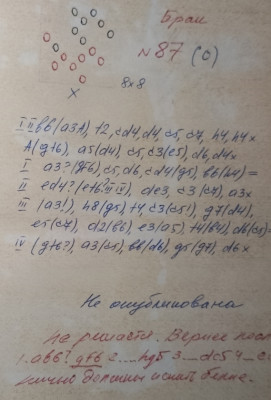 Брак
N 87 (0)
8x8
X
I II b6 (a3A), f2, cd4, d4, c5, c7, h4, h4x
A (gf6), a5 (d4), c5, c3 (e5), d6, d4x
I a3? (gf6), c5, d6, cd4 (g5), b6 (h4) =
II ed4? (ef6? II IV), de3, c3 (c7), a3x
III (a3!), h8 (g5), f4, c3 (c5!), g7 (d4),
e5 (c7), d2 (b6), e3 (a5), f4 (b4), d6 (c5) =
IV (gf6?), a3 (c5), b6 (d6), g5 (g7), d6x
Не опубликована
Не решается. Вернее
1. ab6? gf6 2... hg5 3... dc5 4...
должны искать белые.